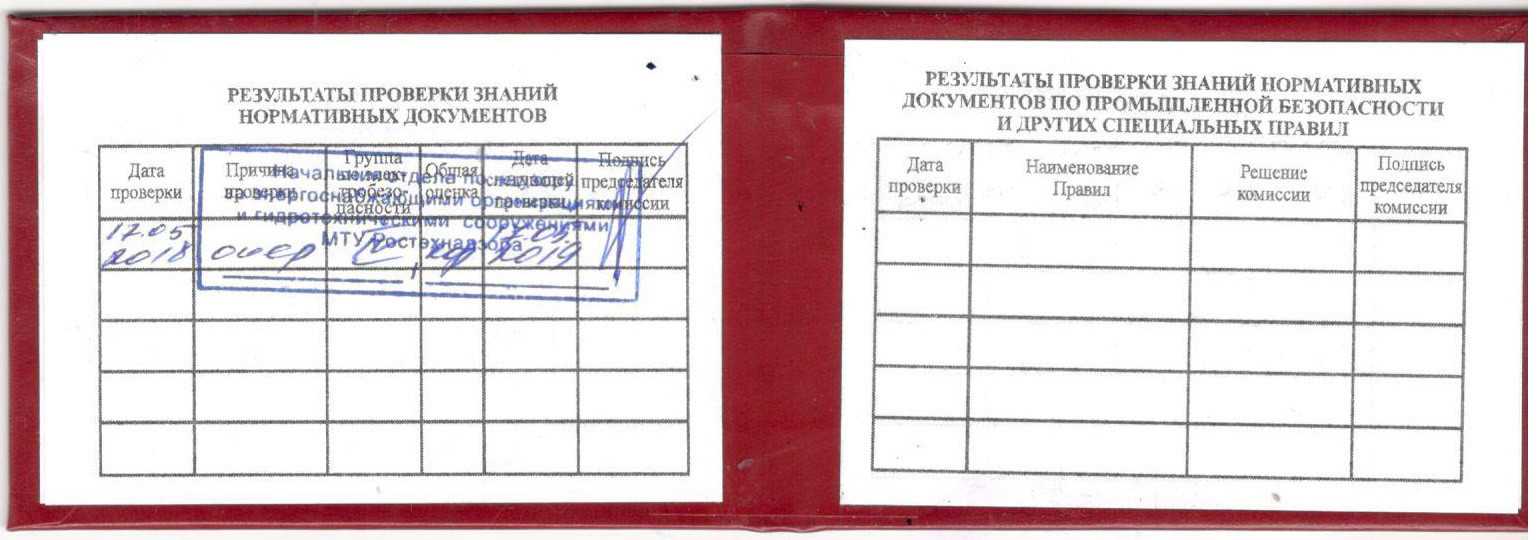 РЕЗУЛЬТАТЫ ПРОВЕРКИ ЗНАНИЙ
НОРМАТИВНЫХ ДОКУМЕНТОВ
Дата
проверки
Причина
проверки
Группа
по элек-
тробезо-
пасности
Общая
оценка
Дата
следующей
проверки
Подпись
председателя
комиссии
Начальник отдела по надзору
за энергоснабжающими организациями
и гидротехническими сооружениями
МТУ Ростехнадзора
17.05
2018
очер
17.05.
2019
РЕЗУЛЬТАТЫ ПРОВЕРКИ ЗНАНИЙ НОРМАТИВНЫХ
ДОКУМЕНТОВ ПО ПРОМЫШЛЕННОЙ БЕЗОПАСНОСТИ
И ДРУГИХ СПЕЦИАЛЬНЫХ ПРАВИЛ
Дата
проверки
Наименование
Правил
Решение
комиссии
Подпись
председателя
комиссии